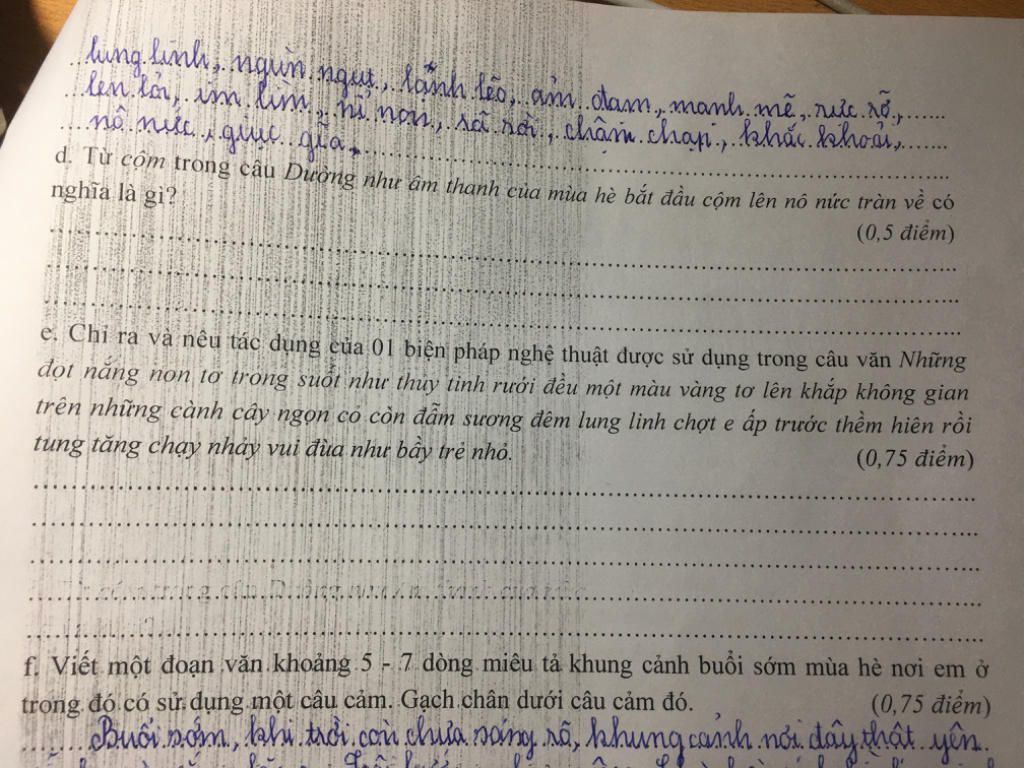 lung linh, ngùn ngụt, lạnh lẽo, ảm đạm, manh mẽ, rực rỡ,
len lỏi, im lìm, nỉ non, rả rời, chậm chạp, khắc khoải,
nô nức, giục giã,
d. Từ cộm trong câu Dường như âm thanh của mùa hè bắt đầu cộm lên nô nức tràn về có
nghĩa là gì?
(0,5 điểm)
e. Chỉ ra và nêu tác dụng của 01 biện pháp nghệ thuật được sử dụng trong câu văn Những
đọt nắng non tơ trong suốt như thủy tinh rưới đều một màu vàng tơ lên khắp không gian
trên những cành cây ngọn cỏ còn đẫm sương đêm lung linh chợt e ấp trước thềm hiên rồi
tung tăng chạy nhảy vui đùa như bầy trẻ nhỏ. (0,75 điểm)
f. Viết một đoạn văn khoảng 5 - 7 dòng miêu tả khung cảnh buổi sớm mùa hè nơi em ở
trong đó có sử dụng một câu cảm. Gạch chân dưới câu cảm đó. (0,75 điểm)
Buổi sớm, khi trời còn chưa sáng rõ, khung cảnh nơi đây thật yên